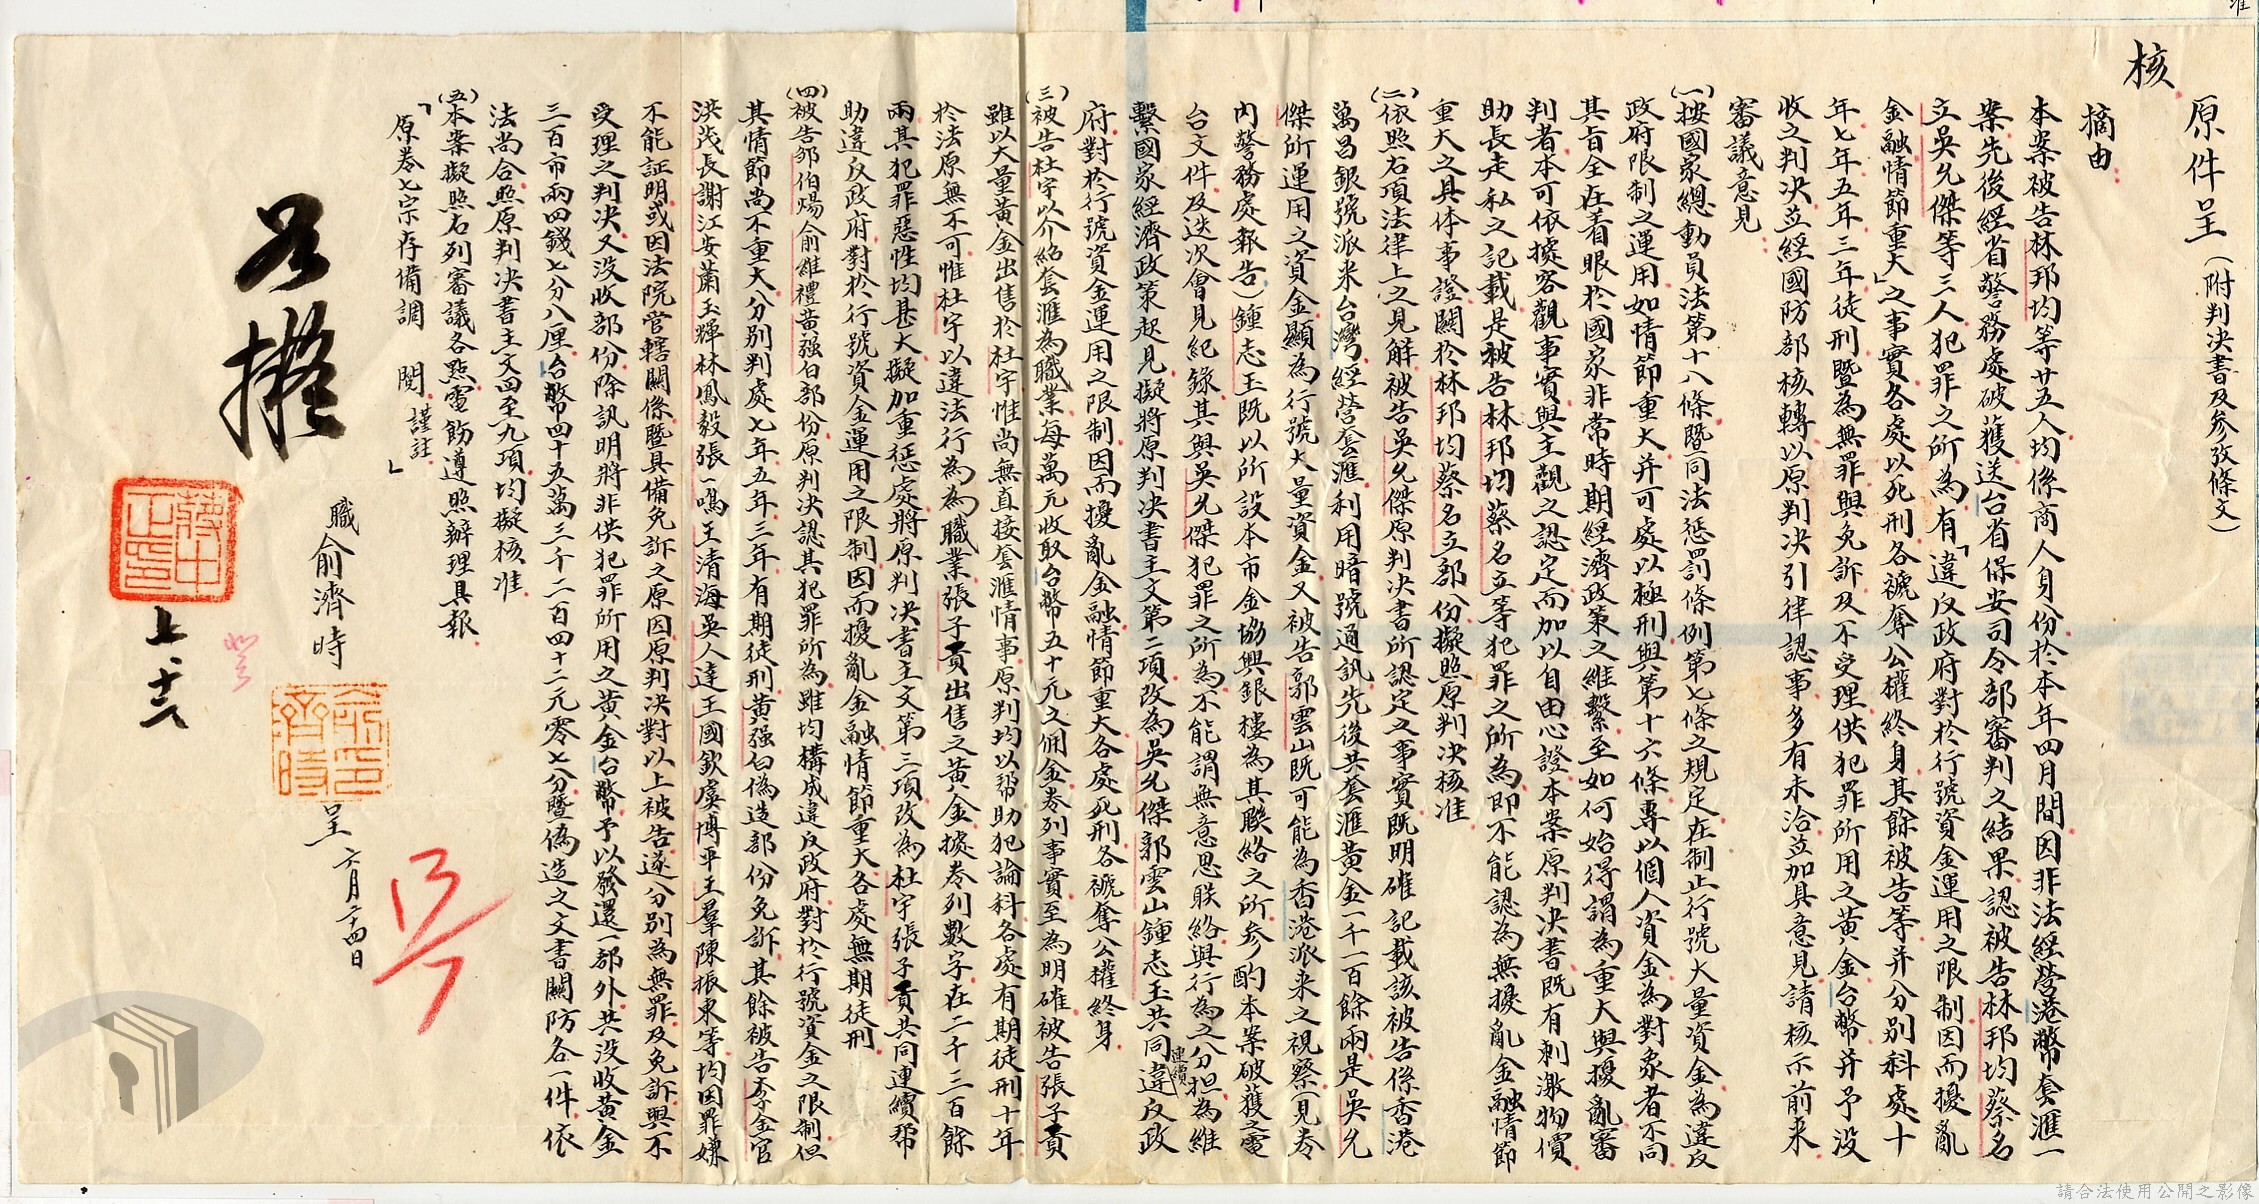 核
原件呈(附判決書及參攷條文)
摘由:
本案被告林邦均等廿五人均係商人身份於本年四月間因非法經營港幣套滙一
案先後經省警務處破獲送台省保安司令部審判之結果認被告林邦均蔡名
立吳允傑等三人犯罪之所為有「違反政府對於行號資金運用之限制因而擾亂
金融情節重大」之事實各處以死刑各褫奪公權終身其餘被告等并分別科處十
年七年五年三年徒刑暨為無罪與免訴及不受理供犯罪所用之黃金台幣并予没
收之判決並經國防部核轉以原判決引律認事多有未洽並加具意見請核示前来
審議意見:
(一)按國家總動員法第十八條暨同法惩罰條例第七條之規定在制止行號大量資金為違反
政府限制之運用如情節重大并可處以極刑與第十六條專以個人資金為對象者不同
其旨全在着眼於國家非常時期經濟政策之維繫至如何始得謂為重大與擾亂審
判者本可依據客觀事實與主觀之認定而加以自由心證本案原判決書既有刺激物價
助長走私之記載是被告林邦均蔡名立等犯罪之所為即不能認為無擾亂金融情節
重大之具体事證關於林邦均蔡名立部份擬照原判決核准
(二)依照右項法律上之見解被告吳允傑原判決書所認定之事實既明確記載該被告係香港
萬昌銀號派来台灣經營套滙利用暗號通訊先後共套滙黃金一千一百餘兩是吳允
傑所運用之資金顯為行號大量資金又被告郭雲山既可能為香港派来之視察(見卷
內警務處報告)鍾志玉既以所設本市金協興銀樓為其联絡之所參酌本案破獲之電
台文件及迭次會見紀錄其與吳允傑犯罪之所為不能謂無意思联絡與行為之分担為維
繫國家經濟政策起見擬將原判決書主文第二項改為吳允傑郭雲山鍾志玉共同連續違反政
府對於行號資金運用之限制因而擾亂金融情節重大各處死刑各褫奪公權終身
(三)被告杜宇以介紹套滙為職業每萬元收取台幣五十元之佣金卷列事實至為明確被告張子貢
雖以大量黃金出售於杜宇惟尚無直接套滙情事原判均以帮助犯論科各處有期徒刑十年
於法原無不可惟杜宇以違法行為為職業張子貢出售之黃金據卷列數字在二千三百餘
兩其犯罪惡性均甚大擬加重惩處將原判決書主文第三項改為杜宇張子貢共同連續帮
助違反政府對於行號資金運用之限制因而擾亂金融情節重大各處無期徒刑
(四)被告邹伯煬俞維禮黃强白部份原判決認其犯罪所為雖均構成違反政府對於行號資金之限制但
其情節尚不重大分別判處七年五年三年有期徒刑黃强白偽造部份免訴其餘被告李金官
洪茂長謝江安蕭玉輝林鳳毅張一鳴王清海吳人達王國欽虞博平王羣陳振東等均因罪嫌
不能証明或因法院管轄關係暨具備免訴之原因原判決對以上被告遂分別為無罪及免訴與不
受理之判決又没收部份除訊明將非供犯罪所用之黃金台幣予以發還一部外共没收黃金
三百市兩四錢七分八厘台幣四十五萬三千二百四十二元零七分暨偽造之文書關防各一件依
法尚合照原判決書主文四至九項均擬核准
(五)本案擬照右列審議各點電飭遵照辦理具報
「原卷七宗存備調閱 謹註」
職俞濟時
俞濟時印
呈
六月二十四日
如擬
蔣中正印